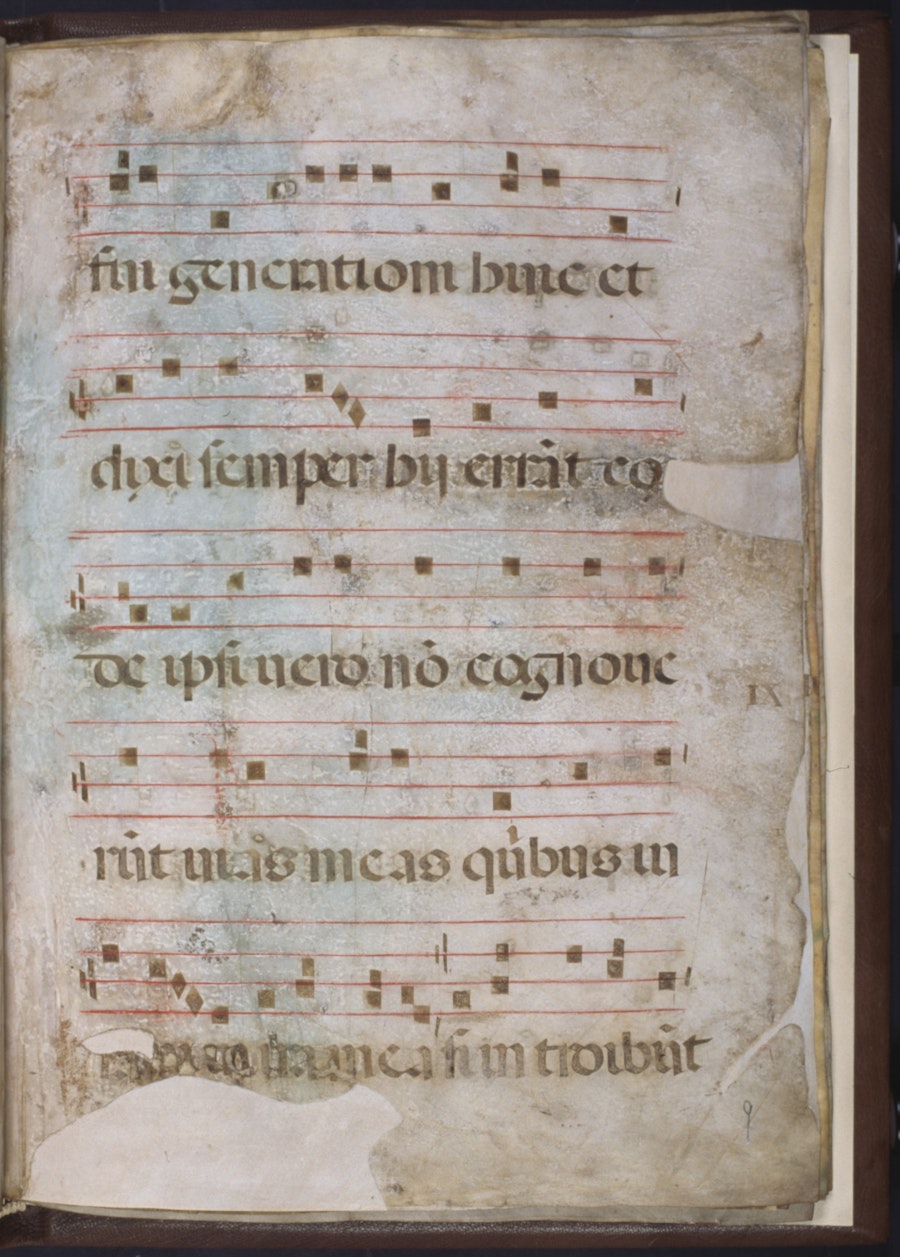 fui generationi huic et
dixi semper hij errāt co
de ipsi uero nō cognoue
IX
rūt uias meas qūbus iu
in ira mea si in troibūt
9